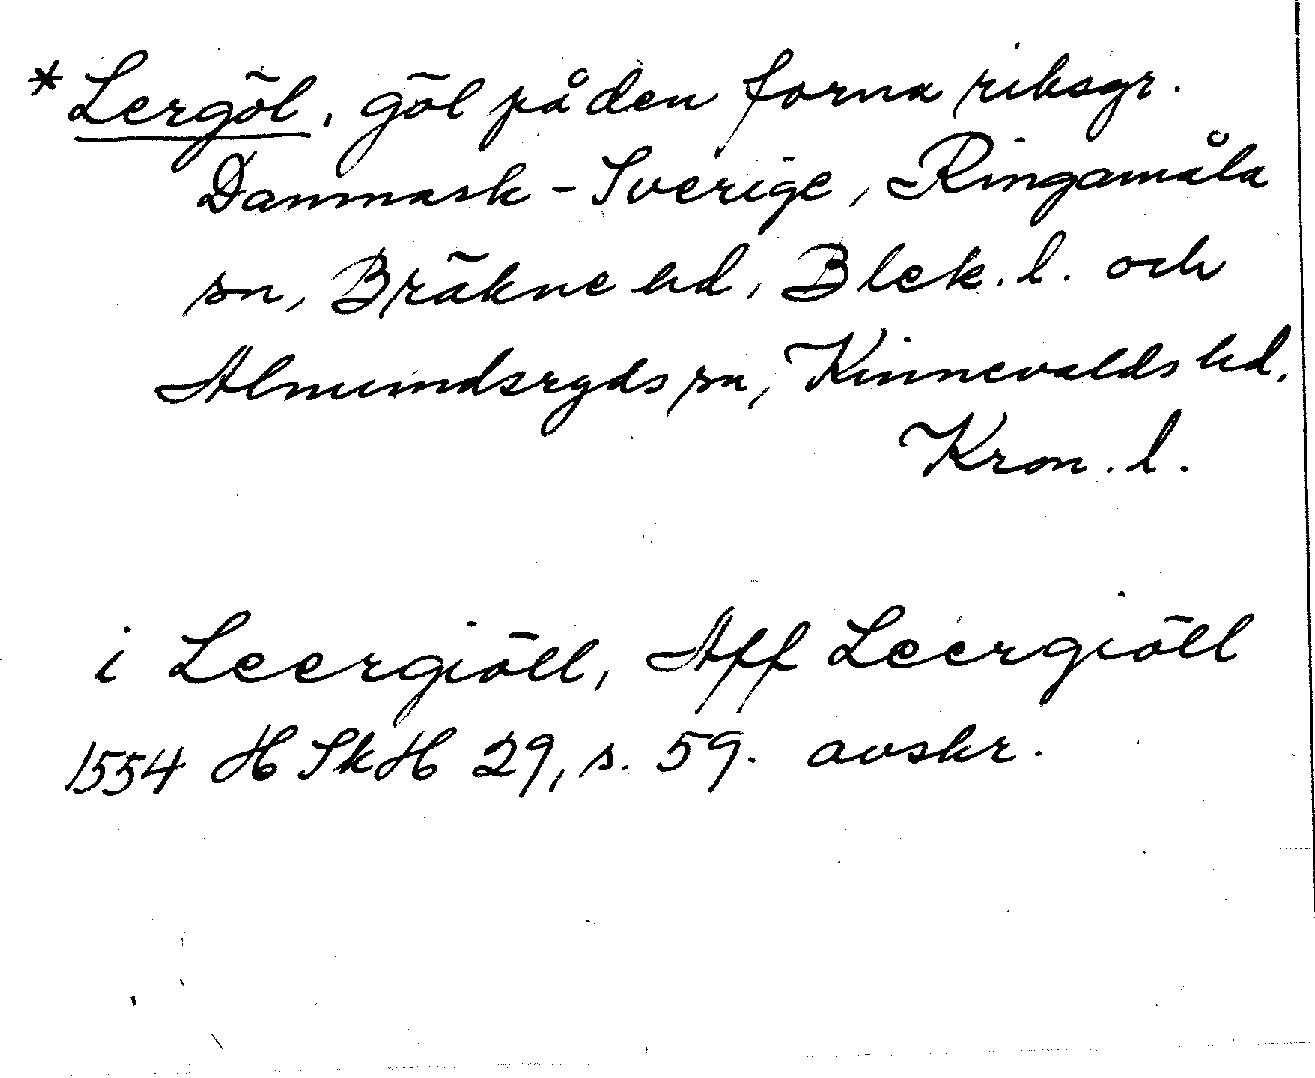 * Lergöl, göl på den forna riksgr.
Danmark - Sverige, Ringamåla
sn, Bräkne hd, Blek. l. och
Almundsryds sn, Kinnevalds hd,
Kron. l.
i Leergiöll, Aff Leergiöll
1554 HSkH 29, s. 59. avskr.